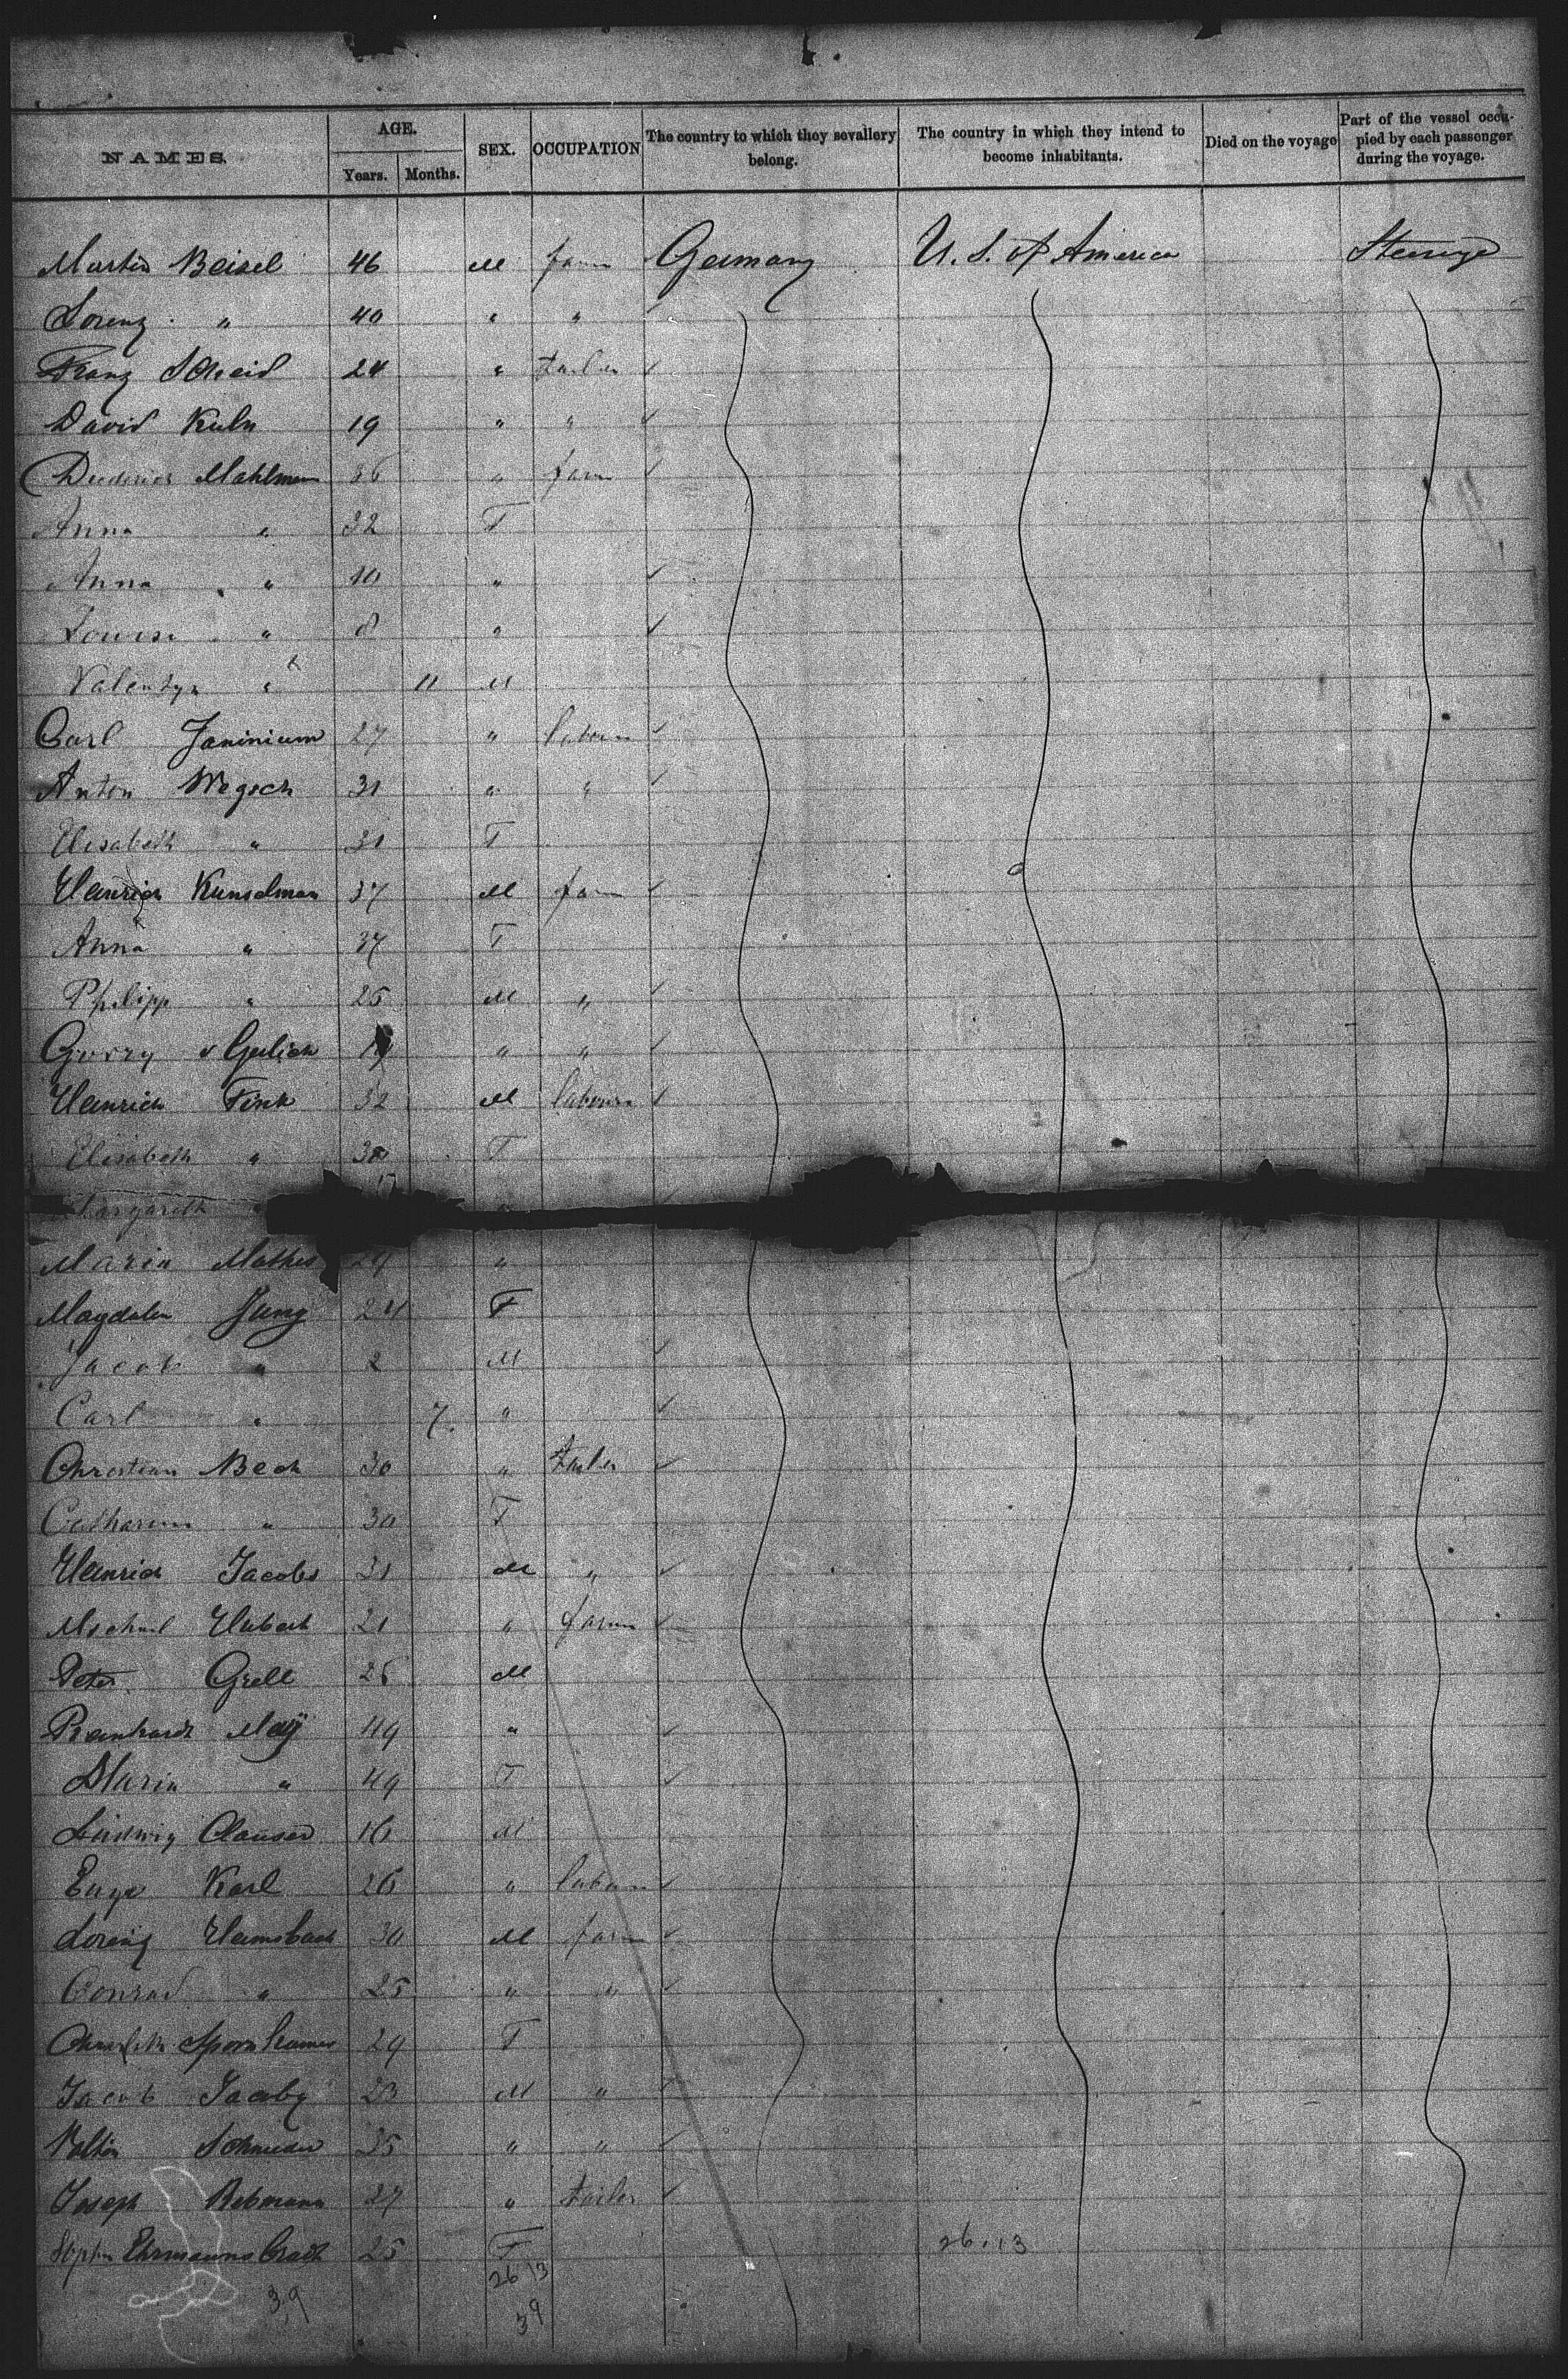 NAMES. AGE. SEX. OCCUPATION The country to which they sevallery belong. The country in which they intend to become inhabitants. Died on the voyage Part of the vessel occupied by each passenger during the voyage.
Years. Months.
Martin Beisel 46 M farm Germany U. S. of America Steerage
Lorenz " 40 " "
Franz Scheid 24 " tailer
David Kuhn 19 " "
Mahlman 36 " farm
Anna " 32 F
Anna " 10 "
Louisa " 8 "
Valentyn " 11 M
Carl Janinium 27 " labourer
Anton Wegsch 31 " "
Elisabeth " 31 F
Heinrich Kunselman 37 M farm
Anna " 37 F
Philipp " 25 M "
Georg v Gerlich " "
Heinrich Fink 32 M labourer
Elisabeth " 30 F
Margareth " "
Maria Mathes 29 "
Magdalen Jung 24 F
Jacob " 2 M
Carl " 7. "
Christian Beck 30 " tailer
Catharina " 30 F
Heinrich Jacobs 31 M "
Michael Hubert 21 " farm
Peter Grell 25 M
Reinhardt May 49 "
Maria " 49 F
Ludwig Clauser 16 M
Karl 26 " labourer
Lorenz Hamsbach 30 M farm
Conrad " 25 " "
29 F
Jacob Jacoby 23 M "
Schneider 35 " "
Joseph Rebmann 27 " tailer
25 F 26.13
26 13
39 39